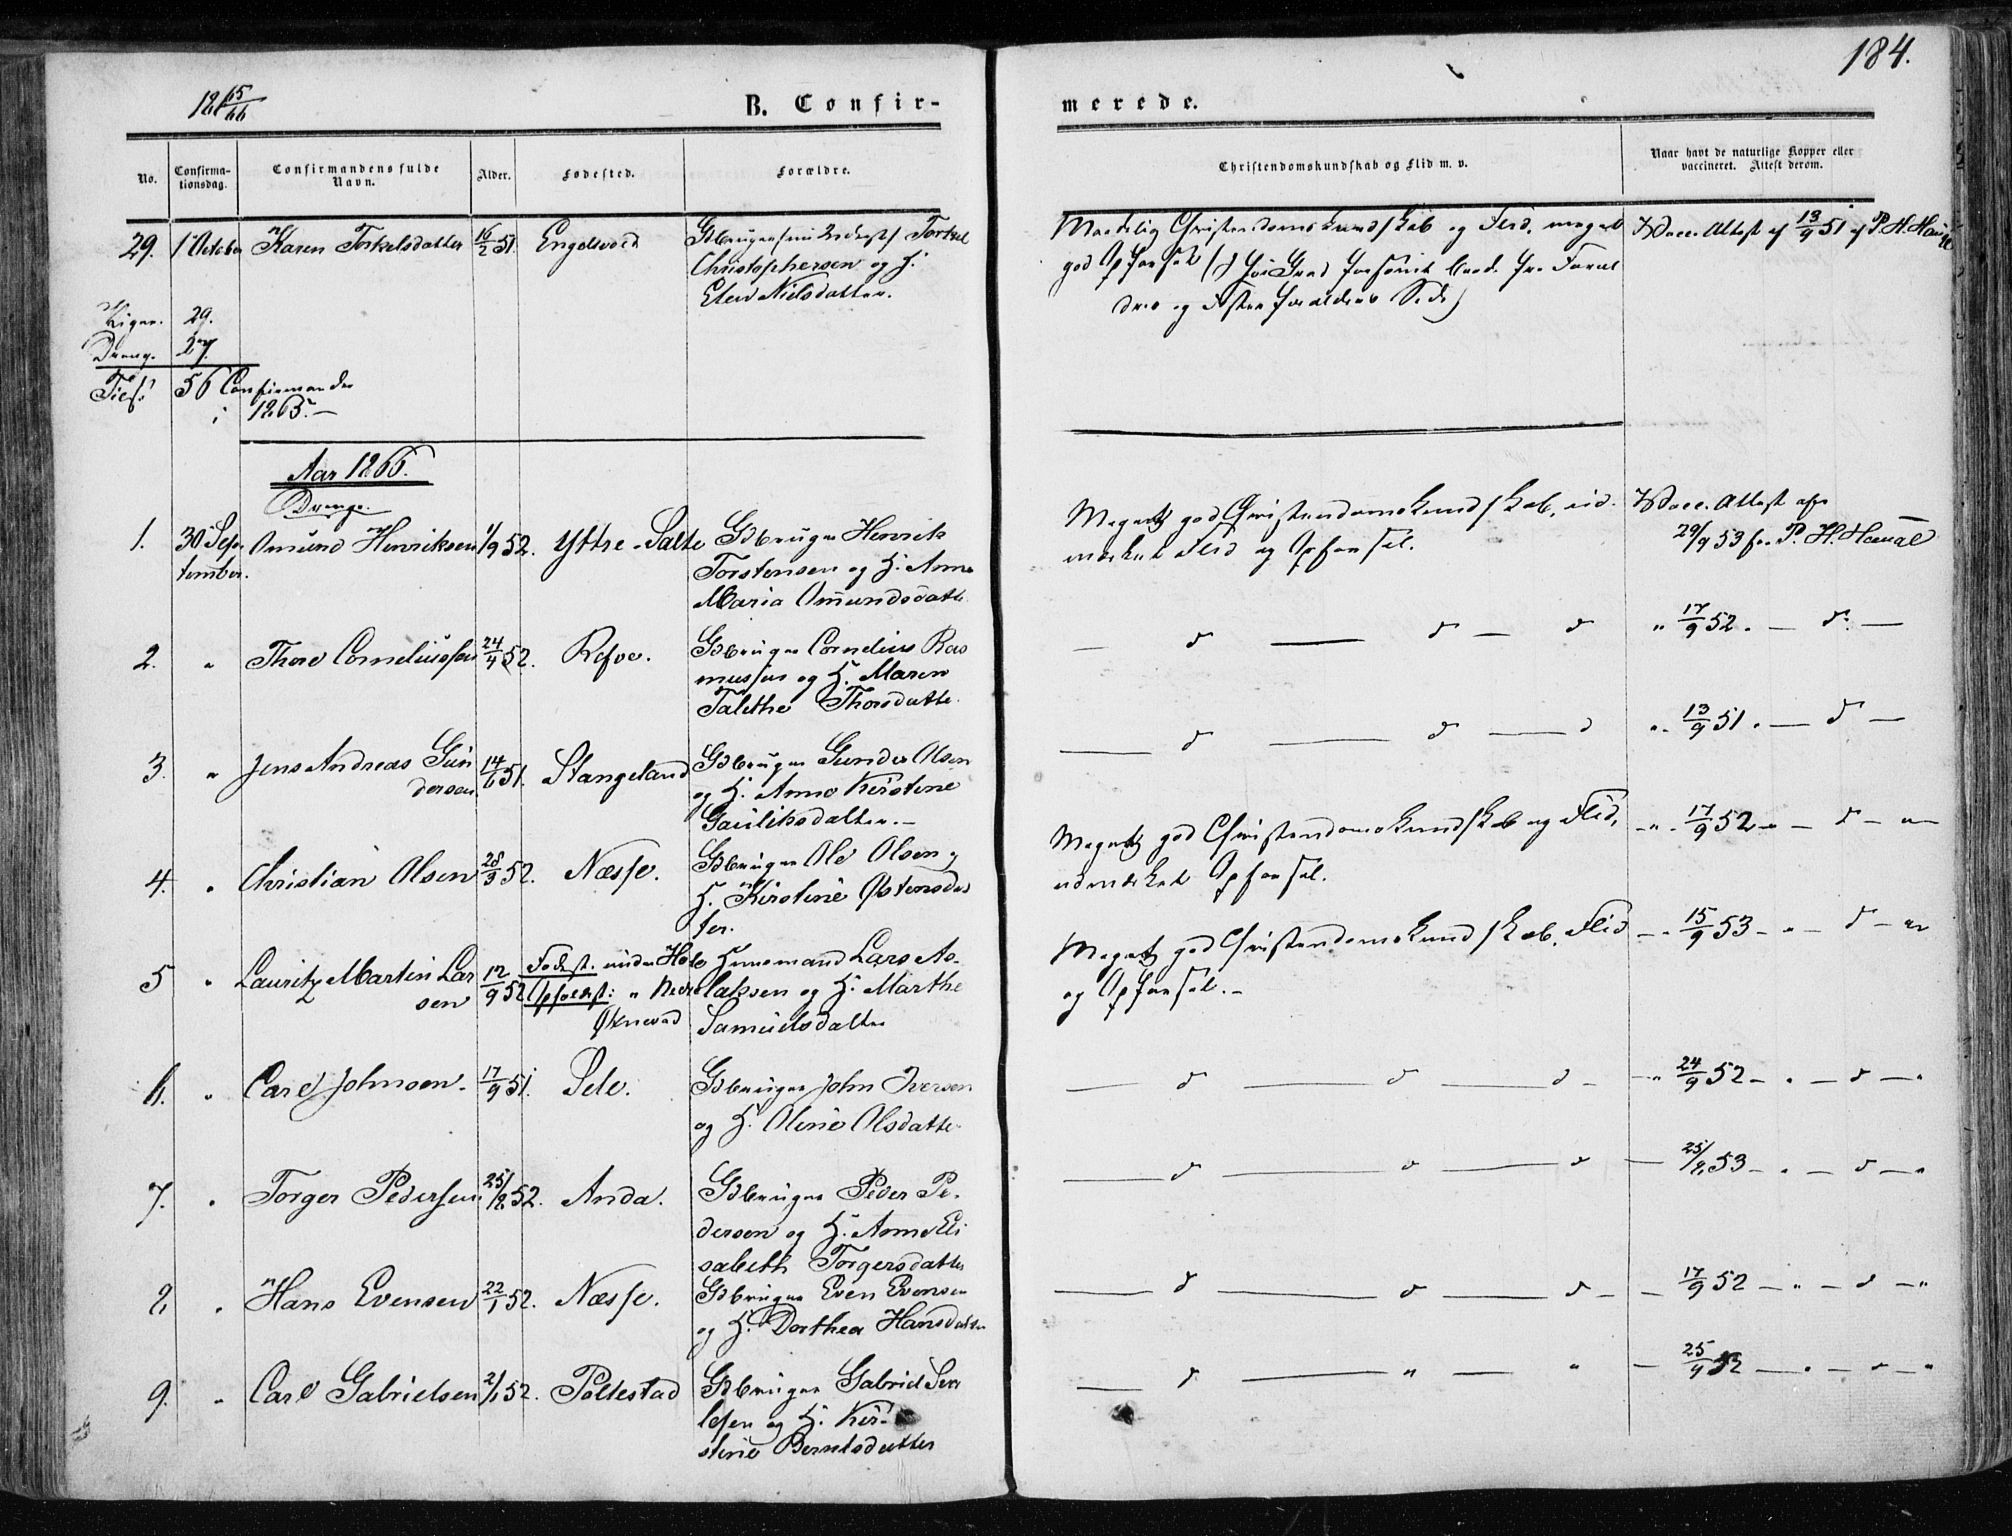 184.
1865/66
B. Confir-
merede.
No.
Confirma-
tionsdag.
Confirmandens fulde
Navn.
Alder.
Fødested.
Forældre.
Christendomskundskab og Flid m. v.
Naar havt de naturlige Kopper eller
vaccineret. Attest derom.
29. 1 October Karen Torkelsdatter 16/2 51. Engelsvold Gbruger Torkel
Christophersen og H.
Elen Nielsdatter.
Maadelig Christendomskundskab og Flid, meget
god Opførsel
og
Vacc. Attest af 13/9 51 af P. H. Haugl
Piger. 29.
Dreng. 27.
Tils: 56 Confirmander
i 1865.—
Aar 1866.
Drenge.
1. 30 Sep-
tember. Omund Henriksen 1/9 52. Yttre-Salte Gbruger Henrik
Torstensen og H. Anne
Maria Omundsdatte
Meget god Christendomskundskab, ud-
mærket Flid og Opførsel.
Vacc. Attest afs
29/9 53 fra P. H. Haugl
2. " Thore Corneliussen 24/4 52. Refve. Gbruger Cornelius Ras
mussen og H. Maren
Talethe Thorsdatte.
— d — d — d " 17/9 52. — d. —
3. " Jens Andreas Gun
dersen 14/6 51. Stangeland Gbruger Gunder Olsen
og H. Anne Kirstine
Gauliksdatter.—
— d — d — d " 13/9 51. — d —
4. " Christian Olsen 28/3 52. Næsse. Gbruger Ole Olsen og
H. Kirstine Østensdat
ter.
Meget god Christendomskundskab og Flid,
udmærket Opførsel.
— " 17/9 52 — d — "
5 " Lauritz Martin Lar
sen 12/9 52 Fødest. under Hole
Opholdst: " Nedre
Øxnevad
Huusmand Lars As-
laksen og H. Marthe
Samuelsdatter
Meget god Christendomskundskab, Flid
og Opførsel.—
— " 15/9 53 — " — d — "
6. " Carl Johnsen. 17/9 51. Sele. Gbruger John Iversen
og H. Oline Olsdatte
— d — d — d — " 24/9 52 — " — d — "
7. " Torger Pedersen 25/12 52. Anda. Gbruger Peder Pe-
dersen og H. Anne Eli
sabeth Torgersdatter
— d — d — d — 25/8 53 — " — d — "
8. " Hans Evensen 22/1 52. Næsse. Gbruger Even Evensen
og H. Dorthea Hansdatter
— d — d — d — 17/9 52 — " — d — "
9. " Carl Gabrielsen 2/1 52. Poltestad Gbruger Gabriel
og H. Kir-
stine Berntsdatter
— d — " — " — 25/9 52 — " — " — "